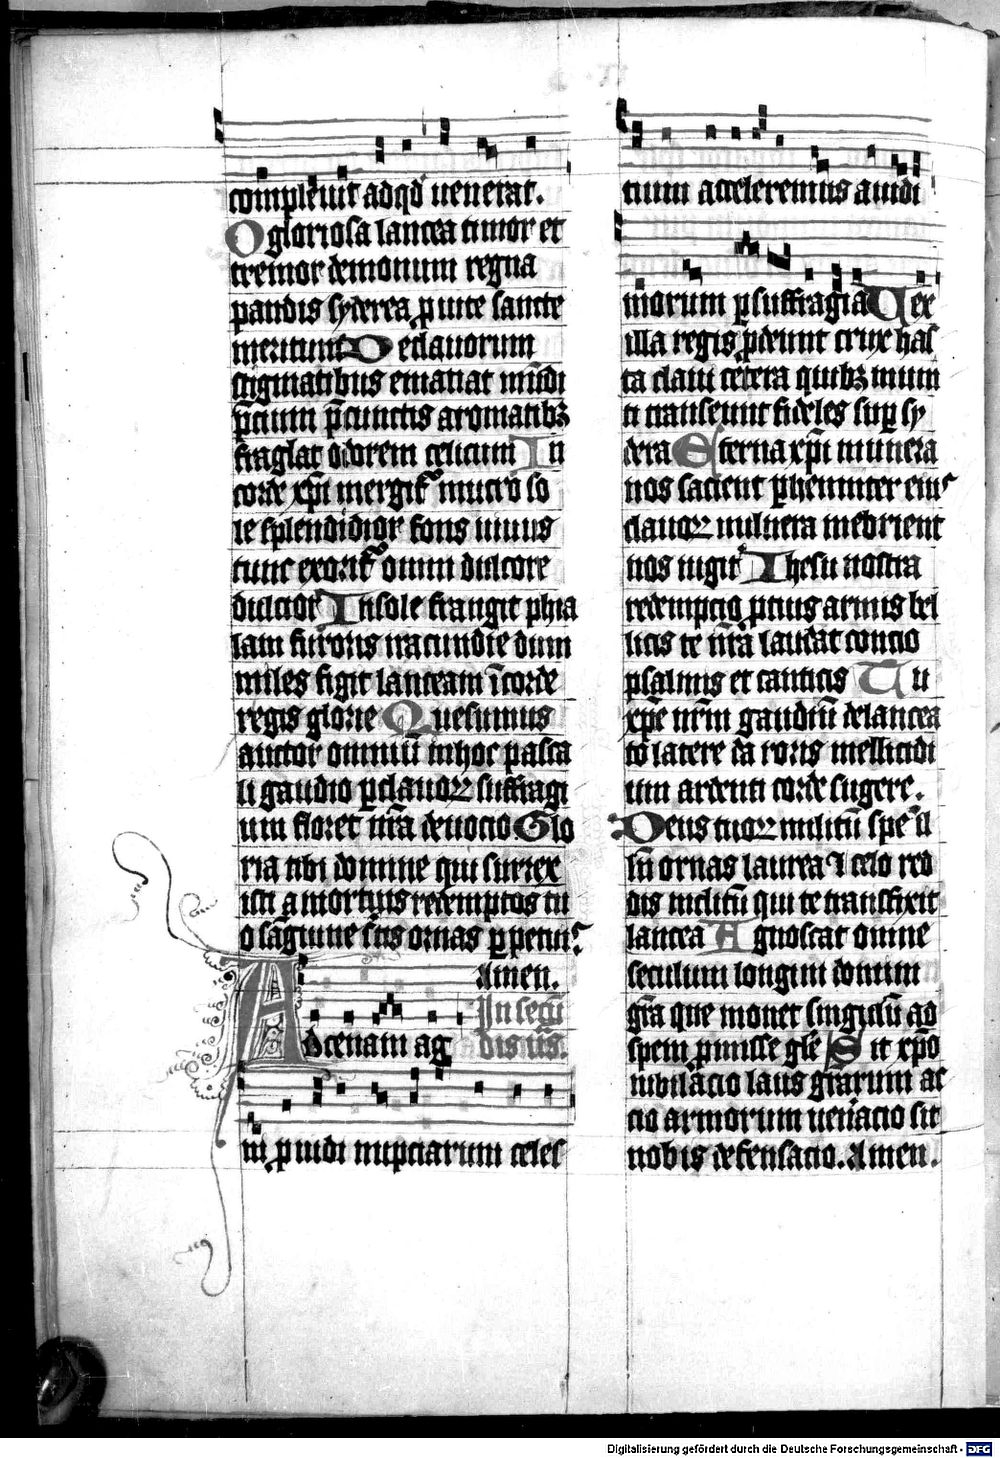 compleuit adqd̕ uenerat.
O gloriosa lancea timor et
tremor demonum regna
pandis syderea p uite sancte
meritum D e clauorum
stigmatibus emanat mūdi
p̄cium p̄ cunctis aromatibꝫ
fraglat odorem celicum I n
corde xp̄i mergit᷑ mucro so
le splendidior fons uiuus
tunc exorit᷑ omni dulcore
dulcior I n sole frangit phia
lam furoris iracundie dum
miles figit lanceam ī corde
regis glorie Q uesumus
auctor omniū in hoc pasca
li gaudio p clauoꝝ suffragi
um floret nr̄a deuocio G lo
ria tibi domine qui surrex
isti a mortuis redemptos tu
o sāgwine scīs ornas ꝑpetim.
Amen.
A d cenam ag
In secūdis us̄.
ni ꝓuidi nupciarum celes
tium acceleremus auidi
morum ꝑ suffragia V ex
illa regis ꝓdeunt crux has
ta claui cetera quibꝫ mun
ti transeunt fideles suꝑ sy
dera E terna xp̄i munera
nos faciunt ꝑhenniter eiuꝰ
clauoꝝ uulnera inebrient
nos iugit᷑ I hesu nostra
redempcio ꝓtius armis bel
licis te nr̄a laudat concio
psalmis et canticis T u
xp̄e nr̄m gaudiū de lancea
to latere da roris mellicidi
um ardenti corde sugere.
D eus tuoꝝ militū spe ill
sū ornas laurea ⁊ celo red
dis inclitū qui te transfixit
lancea A gnoscat omne
seculum longini domini
grā que monet singulū ad
spem ꝓmisse glē S it xp̄o
iubilacio laus gr̄arum ac
cio armorum uenacio sit
nobis defensacio. Amen.
Digitalisierung gefördert durch die Deutsche Forschungsgemeinschaft - DFG